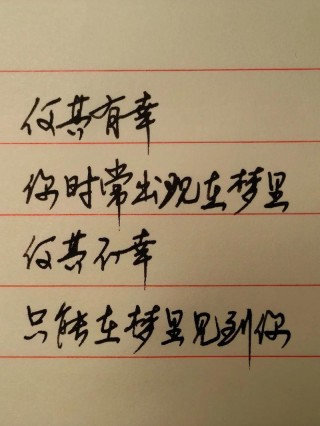 何其有幸
你时常出现在梦里
何其不幸
只能在梦里见到你